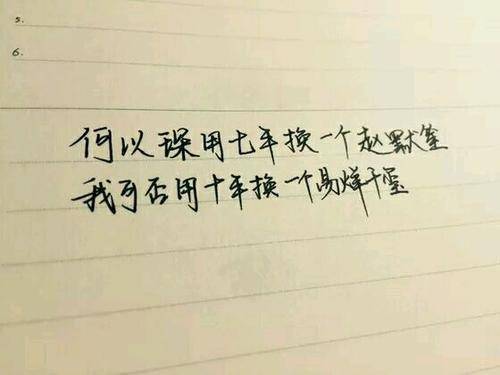 5.
6.
何以琛用七年换一个赵默笙
我可否用十年换一个易烊千玺